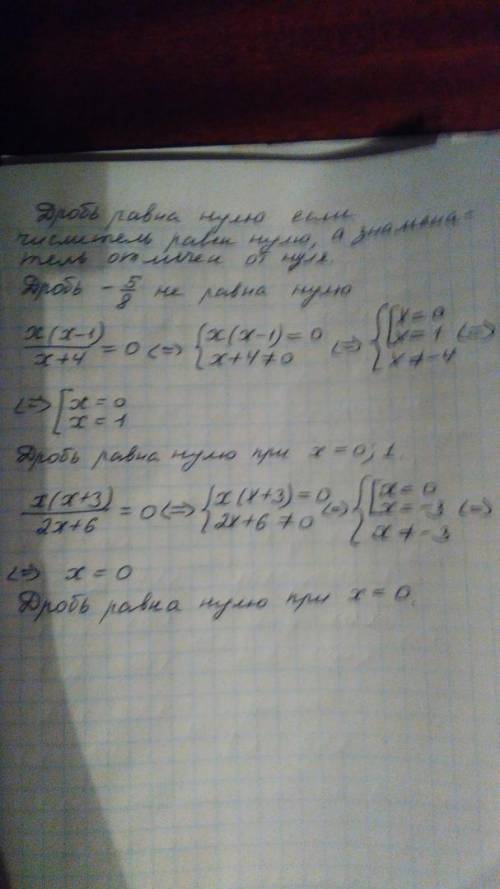 Дробь равна нулю если
числитель равен нулю, а знамена-
тель отличен от нуля.
Дробь -5/8 не равна нулю
x(x-1)/x+4 = 0 <=> {x(x-1)=0 x+4≠0 <=> {[x=0 x=1 x≠-4 <=>
<=> [x=0 x=1
Дробь равна нулю при x=0; 1.
x(x+3)/2x+6 = 0 <=> {x(x+3)=0 2x+6≠0 <=> {[x=0 x=-3 x≠-3 <=>
<=> x=0
Дробь равна нулю при x=0.